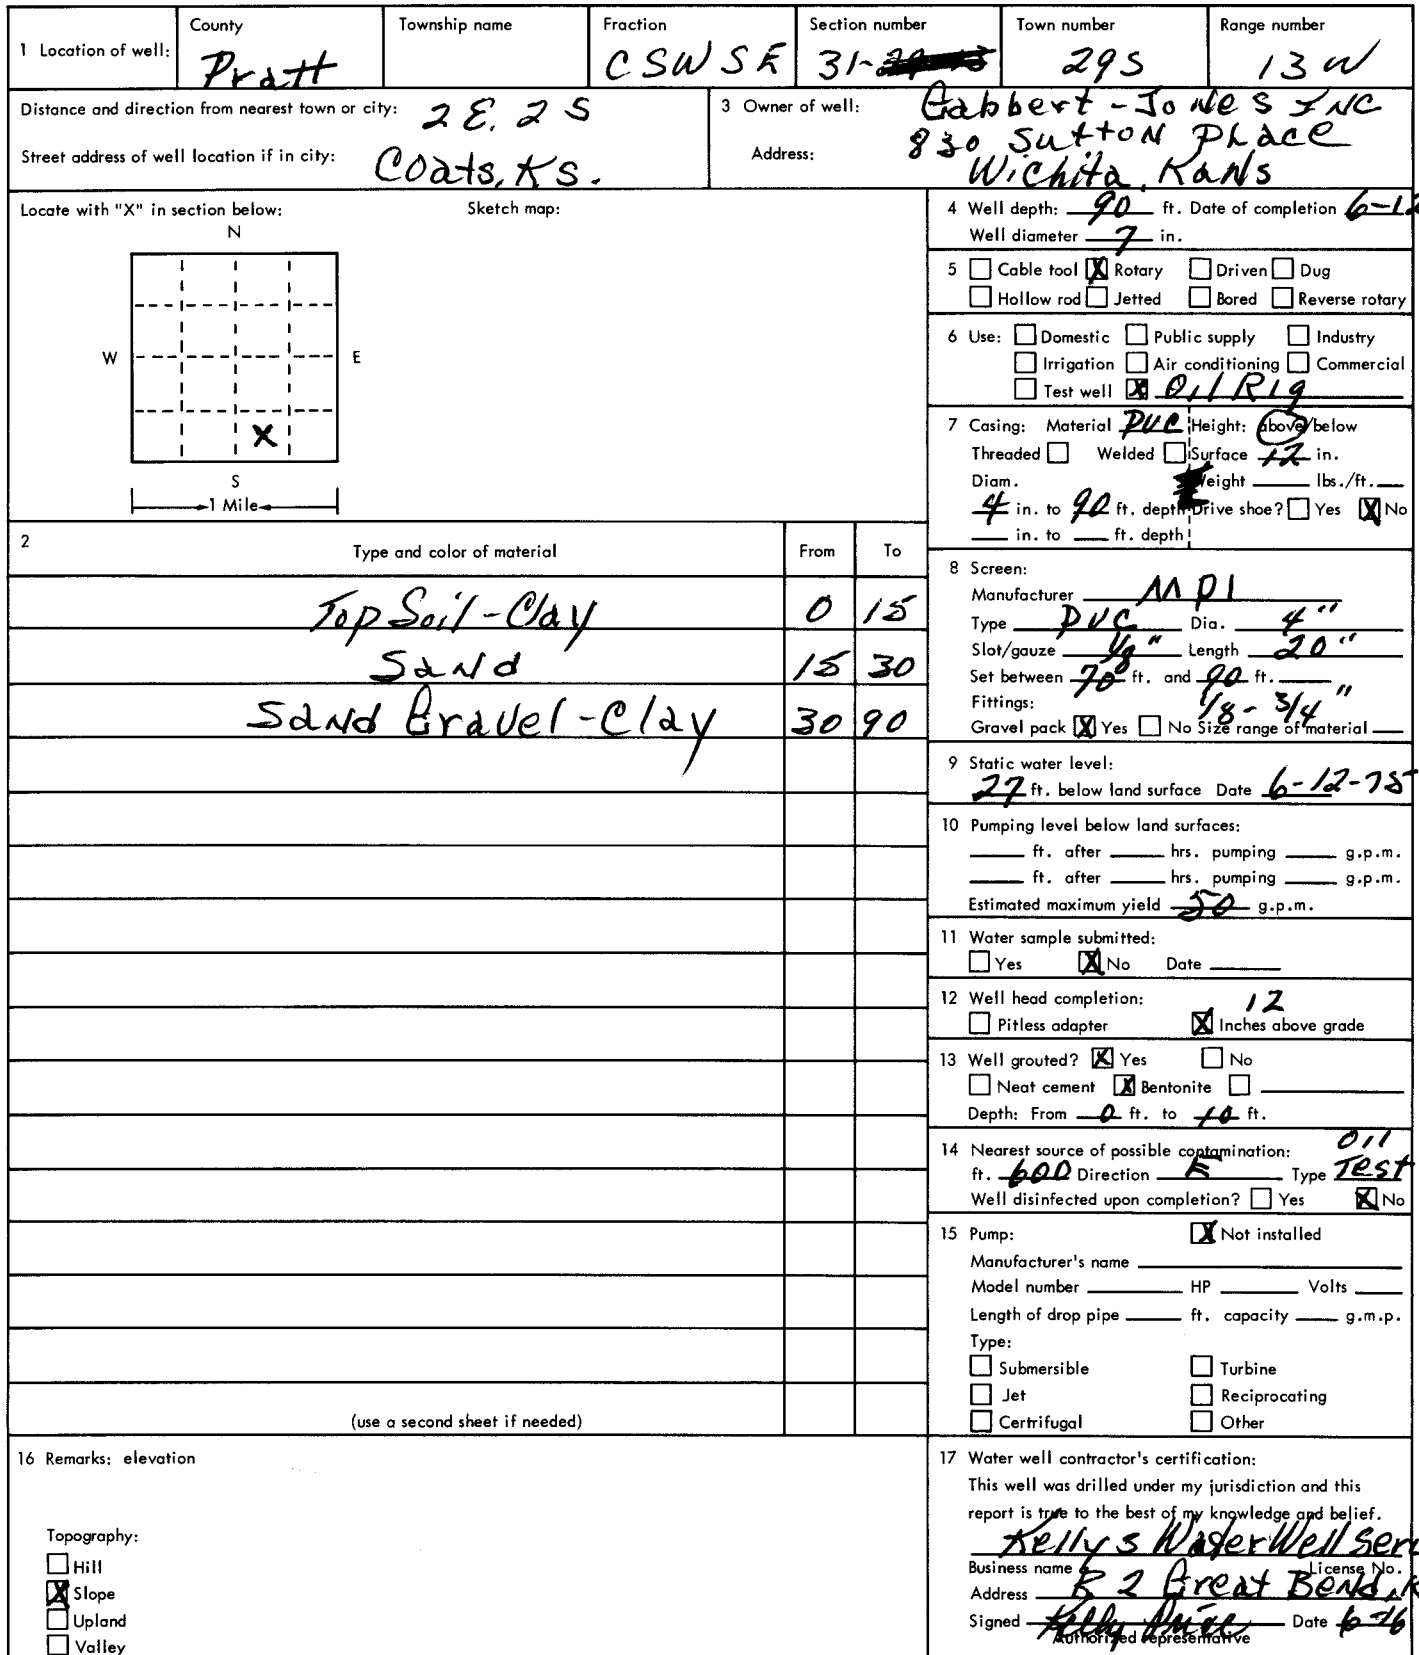 1 Location of well:
County
Pratt
Township name
Fraction
CSWSE
Section number
31-
Town number
29S
Range number
13W
Distance and direction from nearest town or city: 2E. 2S
Street address of well location if in city: Coats, KS.
3 Owner of well: Gabbert-Jones INC
Address: 830 Sutton Place
Wichita, Kans
Locate with "X" in section below:
Sketch map:
N
W E
X
S
1 Mile
4 Well depth: 90 ft. Date of completion 6-12
Well diameter 7 in.
5 Cable tool X Rotary Driven Dug
Hollow rod Jetted Bored Reverse rotary
6 Use: Domestic Public supply Industry
Irrigation Air conditioning Commercial
Test well X Oil Rig
7 Casing: Material PVC Height: above/below
Threaded Welded Surface 12 in.
Diam. Weight lbs./ft.
4 in. to 90 ft. depth Drive shoe? Yes X No
in. to ft. depth
2 Type and color of material From To
Top Soil-Clay 0 15
Sand 15 30
Sand Gravel-Clay 30 90
(use a second sheet if needed)
8 Screen:
Manufacturer MPI
Type PVC Dia. 4"
Slot/gauze 1/8" Length 20"
Set between 70 ft. and 90 ft.
Fittings: 1/8-3/4"
Gravel pack X Yes No Size range of material
9 Static water level:
27 ft. below land surface Date 6-12-75
10 Pumping level below land surfaces:
ft. after hrs. pumping g.p.m.
ft. after hrs. pumping g.p.m.
Estimated maximum yield 50 g.p.m.
11 Water sample submitted:
Yes X No Date
12 Well head completion: 12
Pitless adapter X Inches above grade
13 Well grouted? X Yes No
Neat cement X Bentonite
Depth: From 0 ft. to 10 ft.
14 Nearest source of possible contamination: Oil
ft. 600 Direction E Type Test
Well disinfected upon completion? Yes X No
15 Pump: X Not installed
Manufacturer's name
Model number HP Volts
Length of drop pipe ft. capacity g.m.p.
Type:
Submersible Turbine
Jet Reciprocating
Certrifugal Other
16 Remarks: elevation
Topography:
Hill
X Slope
Upland
Valley
17 Water well contractor's certification:
This well was drilled under my jurisdiction and this
report is true to the best of my knowledge and belief.
Kellys Water Well Serv
Business name License No.
Address R 2 Great Bend, K
Signed Kelly Price Date 6-16
Authorized representative